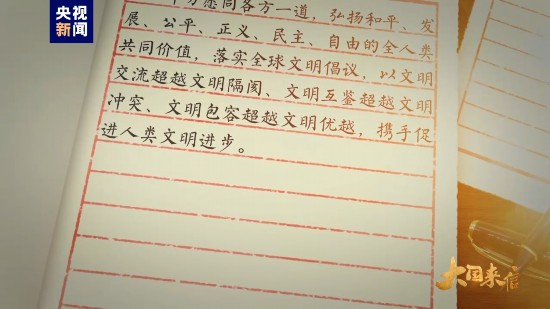 央视新闻
方愿同各方一道，弘扬和平、发
展、公平、正义、民主、自由的全人类
共同价值，落实全球文明倡议，以文明
交流超越文明隔阂、文明互鉴超越文明
冲突、文明包容超越文明优越，携手促
进人类文明进步。
大国来信